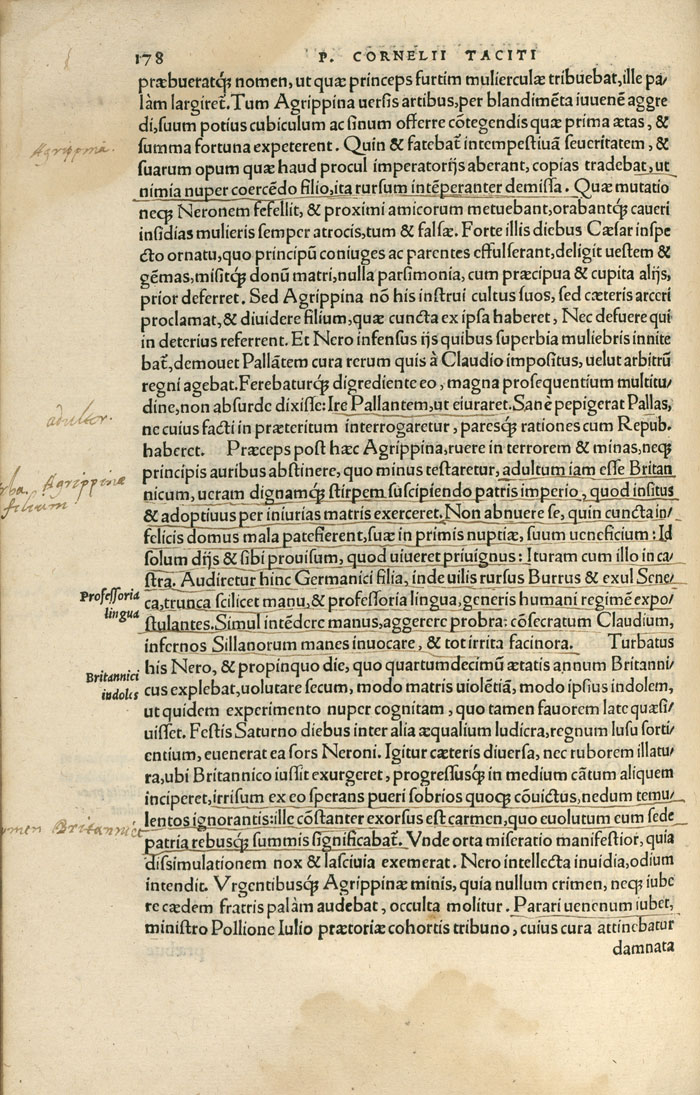 178 P. CORNELII TACITI
præbueratq́ꝫ nomen, ut quæ princeps furtim mulierculæ tribuebat, ille pa/
làm largiret̃. Tum Agrippina uersis artibus, per blandimẽta iuuenẽ aggre
di, suum potius cubiculum ac sinum offerre cõtegendis quæ prima ætas, &
Agrippina.
summa fortuna expeterent. Quin & fatebat̃ intempestiuã seueritatem, &
suarum opum quæ haud procul imperatorijs aberant, copias tradebat, ut
nimia nuper coercẽdo filio, ita rursum intẽperanter demissa. Quæ mutatio
neq́ꝫ Neronem fefellit, & proximi amicorum metuebant, orabantq́ꝫ caueri
insidias mulieris semper atrocis, tum & falsæ. Forte illis diebus Cæsar inspe
cto ornatu, quo principũ coniuges ac parentes effulserant, deligit uestem &
gẽmas, misitq́ꝫ donũ matri, nulla parsimonia, cum præcipua & cupita alijs,
prior deferret. Sed Agrippina nõ his instrui cultus suos, sed cæteris arceri
proclamat, & diuidere filium, quæ cuncta ex ipsa haberet, Nec defuere qui
in deterius referrent. Et Nero infensus ijs quibus superbia muliebris innite
bat̃, demouet Pallãtem cura rerum quis à Claudio impositus, uelut arbitrũ
regni agebat. Ferebaturq́ꝫ digrediente eo, magna prosequentium multitu/
adultor.
dine, non absurde dixisse: Ire Pallantem, ut eiuraret. Sanè pepigerat Pallas,
ne cuius facti in præteritum interrogaretur, paresq́ꝫ rationes cum Repub.
haberet. Præceps post hæc Agrippina, ruere in terrorem & minas, neq́ꝫ
principis auribus abstinere, quo minus testaretur, adultum iam esse Britan
rba Agrippinæ
filium
nicum, ueram dignamq́ꝫ stirpem suscipiendo patris imperio, quod insitus
& adoptiuus per iniurias matris exerceret. Non abnuere se, quin cuncta in/
felicis domus mala patefierent, suæ in primis nuptiæ, suum ueneficium: Id
solum dijs & sibi prouisum, quod uiueret priuignus: Ituram cum illo in ca/
stra. Audiretur hinc Germanici filia, inde uilis rursus Burrus & exul Sene/
Professoria
lingua
ca, trunca scilicet manu, & professoria lingua, generis humani regimẽ expo/
stulantes. Simul intẽdere manus, aggerere probra: cõsecratum Claudium,
infernos Sillanorum manes inuocare, & tot irrita facinora. Turbatus
Britannici
indoles
his Nero, & propinquo die, quo quartumdecimũ ætatis annum Britanni/
cus explebat, uolutare secum, modo matris uiolẽtiã, modo ipsius indolem,
ut quidem experimento nuper cognitam, quo tamen fauorem late quæsi/
uisset. Festis Saturno diebus inter alia æqualium ludicra, regnum lusu sorti/
entium, euenerat ea sors Neroni. Igitur cæteris diuersa, nec ruborem illatu/
ra, ubi Britannico iussit exurgeret, progressusq́ꝫ in medium cãtum aliquem
inciperet, irrisum ex eo sperans pueri sobrios quoq́ꝫ cõuictus, nedum temu/
lentos ignorantis: ille cõstanter exorsus est carmen, quo euolutum eum sede
omen Britannici
patria rebusq́ꝫ summis significabat̃. Vnde orta miseratio manifestior, quia
dissimulationem nox & lasciuia exemerat. Nero intellecta inuidia, odium
intendit. Vrgentibusq́ꝫ Agrippinæ minis, quia nullum crimen, neq́ꝫ iube
re cædem fratris palàm audebat, occulta molitur. Parari uenenum iubet,
ministro Pollione Iulio prætoriæ cohortis tribuno, cuius cura attinebatur
damnata